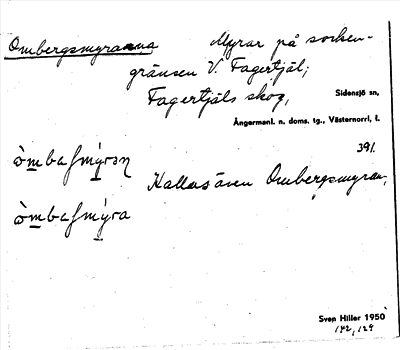 Ombergsmyrarna Myrar på socken-
gränsen V. Fagertjäl;
Fagertjäls skog,
Sidensjö sn,
Ångermanl. n. doms. tg., Västernorrl. l.
391.
òmbaʃmýran
Kallas även Ombergsmyran,
òmbaʃmýra
Sven Hiller 1950
142, 129